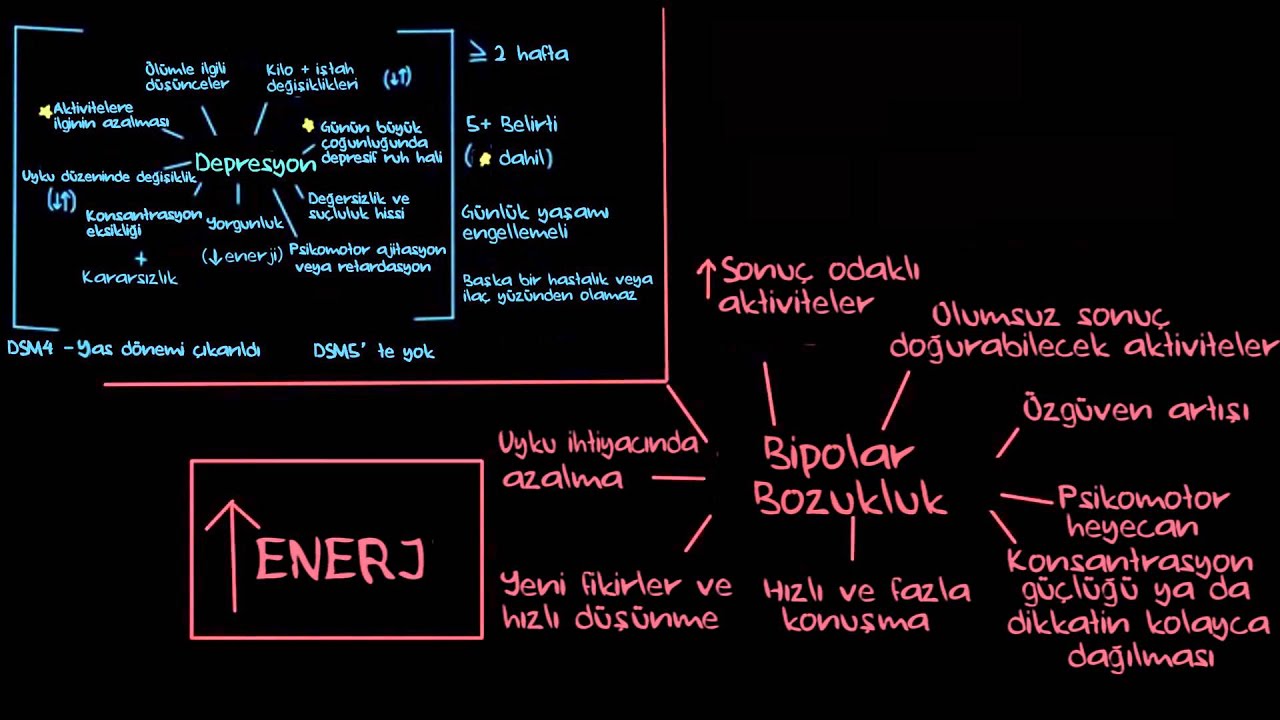 Ölümle ilgili
düşünceler
Kilo + iştah
değişiklikleri
(↓↑)
Aktivitelere
ilginin azalması
Günün büyük
çoğunluğunda
depresif ruh hali
Depresyon
Uyku düzeninde değişiklik
(↓↑)
Konsantrasyon
eksikliği
+
Kararsızlık
Yorgunluk
(↓enerji)
Değersizlik ve
suçluluk hissi
Psikomotor ajitasyon
veya retardasyon
≥ 2 hafta
5+ Belirti
(⭐ dahil)
Günlük yaşamı
engellemeli
Başka bir hastalık veya
ilaç yüzünden olamaz
DSM4 -Yas dönemi çıkarıldı
DSM5' te yok
↑ Sonuç odaklı
aktiviteler
Olumsuz sonuç
doğurabilecek aktiviteler
Özgüven artışı
Uyku ihtiyacında
azalma
Bipolar
Bozukluk
Psikomotor
heyecan
Konsantrasyon
güçlüğü ya da
dikkatin kolayca
dağılması
↑ ENERJ
Yeni fikirler ve
hızlı düşünme
Hızlı ve fazla
konuşma